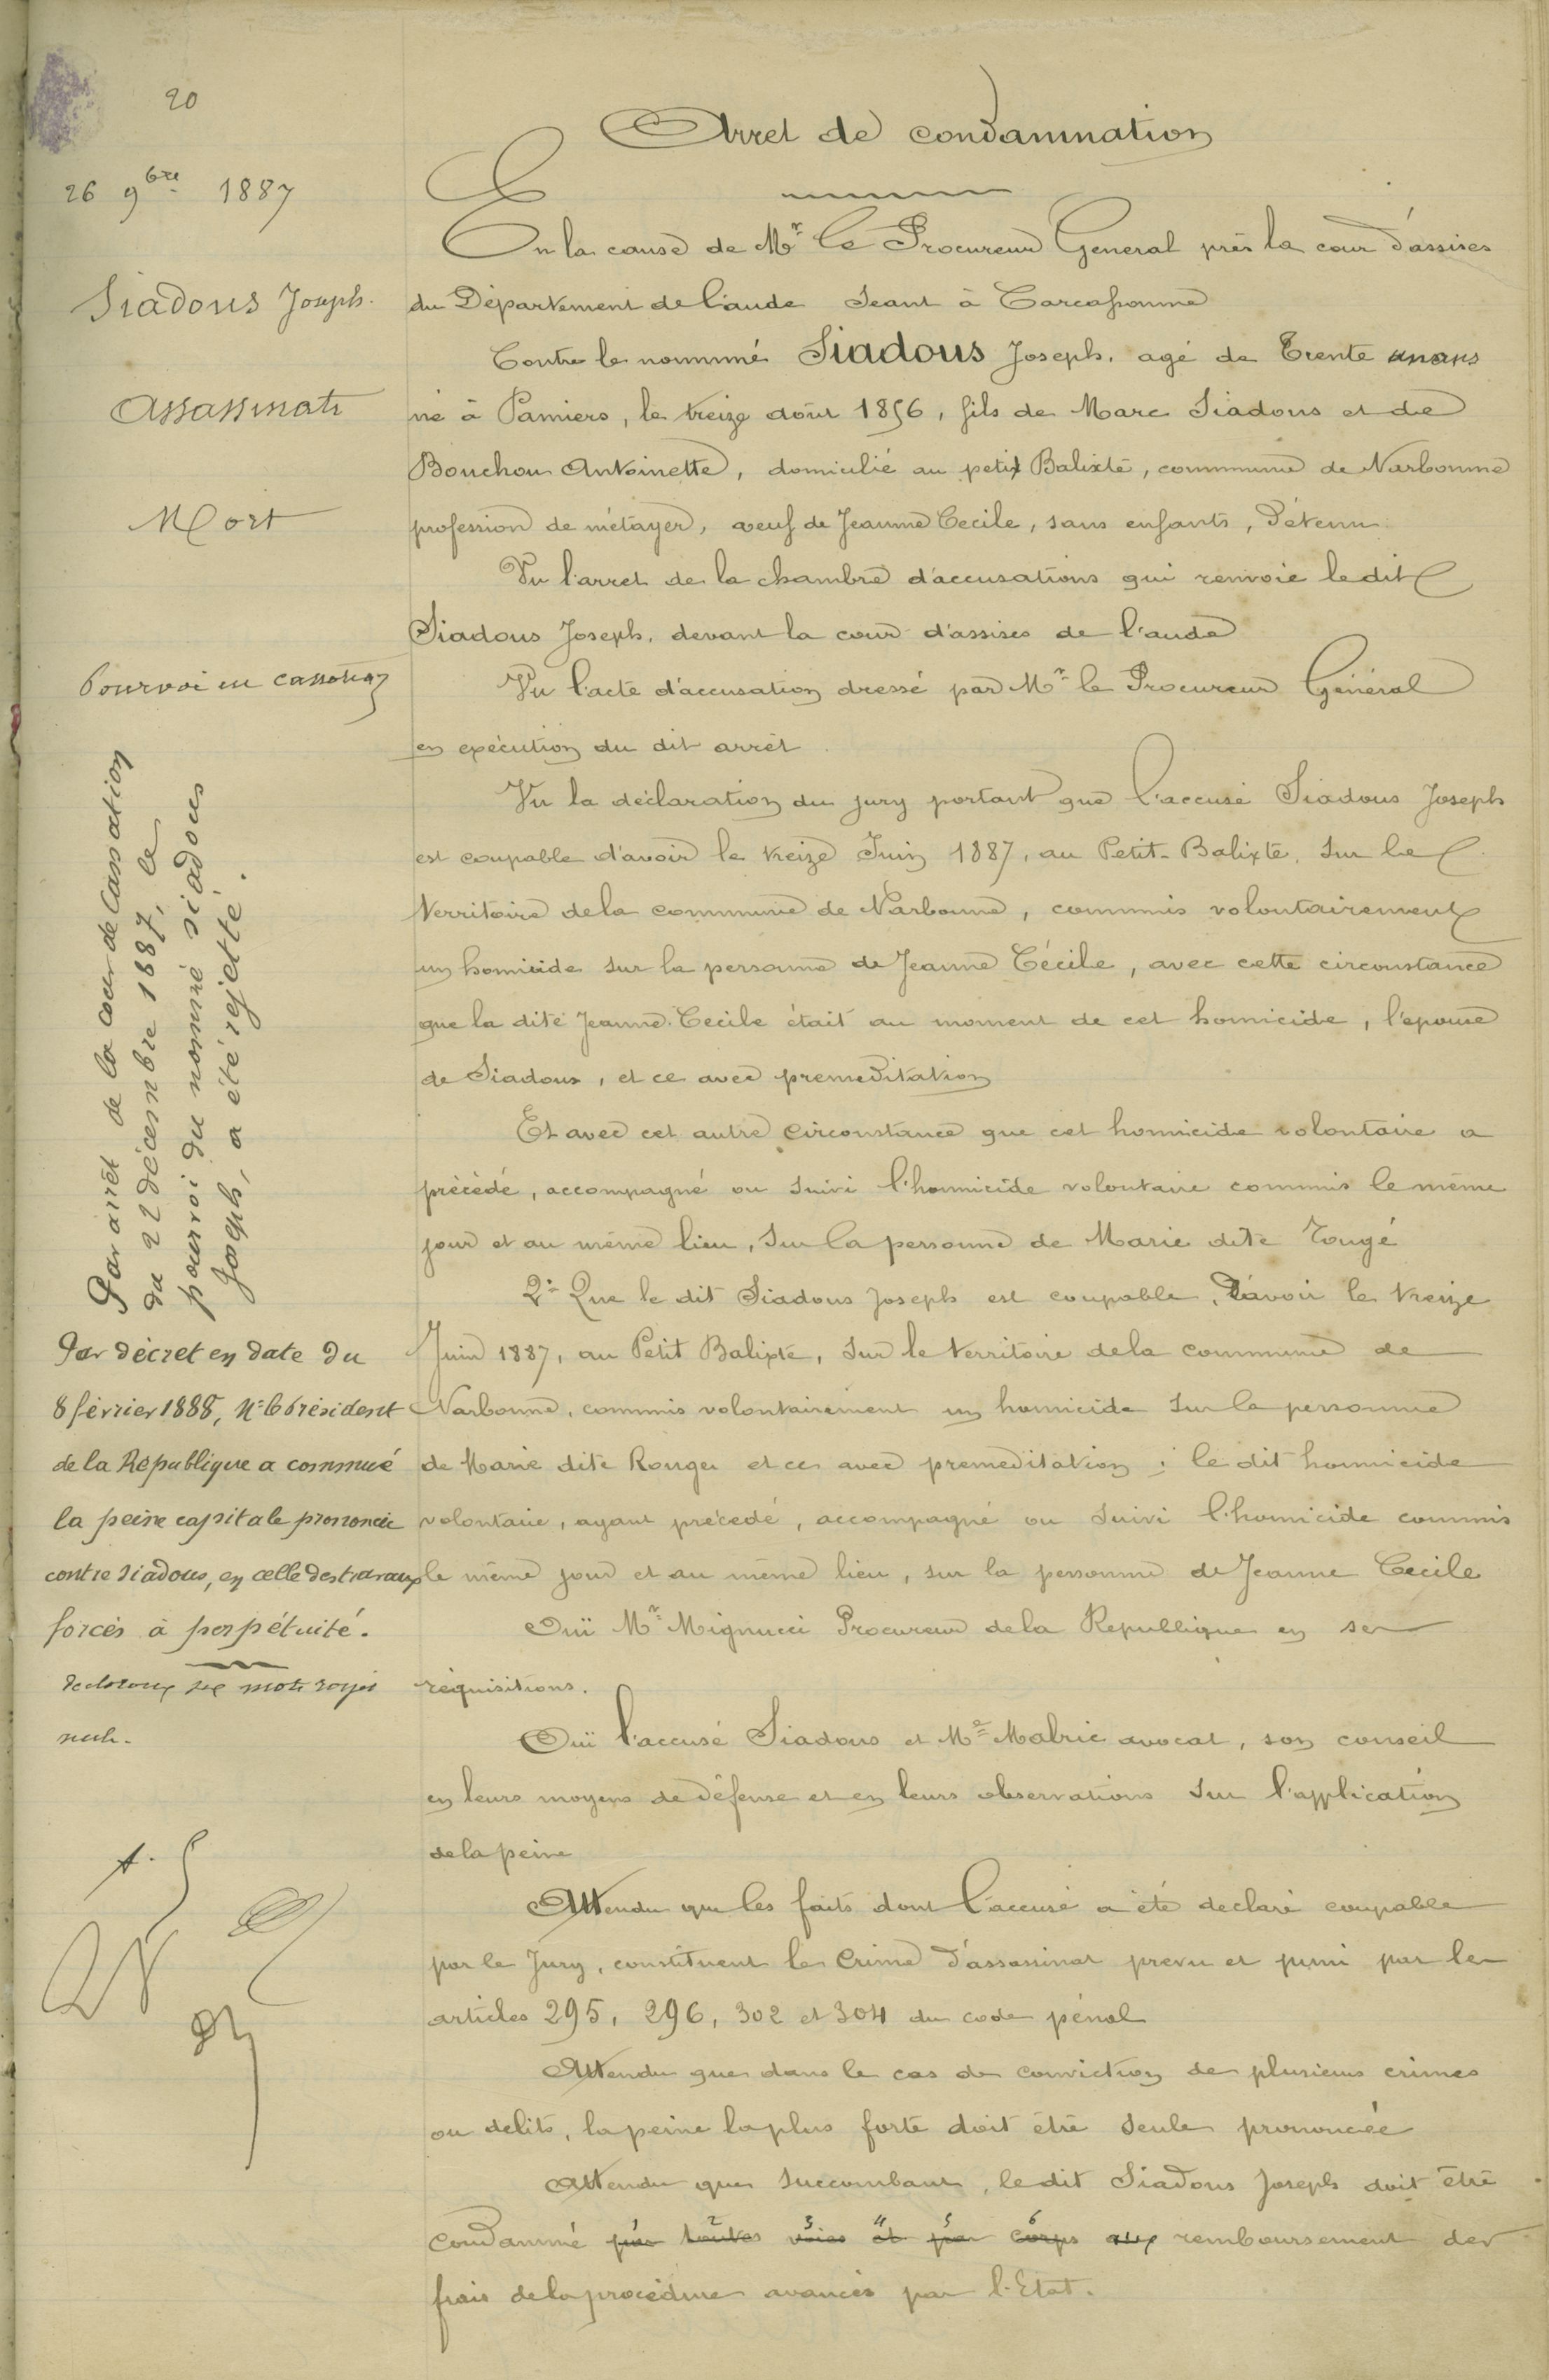 20
26 9bre 1887
Siadous Joseph.
Assassinats
Mort
Pourvoi en cassation
Par arrêt de la cour de Cassation
du 22 décembre 1887, le
pourvoi du nommé Siadous
Joseph, a été rejetté.
Par décret en date du
8 février 1888, Mr le Président
de la République a commué
la peine capitale prononcée
contre Siadous, en celle des travaux
forcés à perpétuité.
six mots rayés
nuls.
Arret de condamnation
En la cause de Mr le Procureur Général près la cour d'assises
du Département de l'aude Seant à Carcassonne
Contre le nommé Siadous Joseph, agé de Trente un ans
né à Pamiers, le treize août 1856, fils de Marc Siadous et de
Bouchou Antoinette, domicilié au petit Balixte, commune de Narbonne
profession de métayer, veuf de Jeanne Cecile, sans enfants, Détenu
Vu l'arret de la chambre d'accusations qui renvoie le dit
Siadous Joseph, devant la cour d'assises de l'aude
Vu l'acte d'accusation dressé par Mr le Procureur Général
en exécution du dit arrêt.
Vu la déclaration du jury portant que l'accusé Siadous Joseph
est coupable d'avoir le treize Juin 1887, au Petit-Balixte, Sur le
territoire de la commune de Narbonne, commis volontairement
un homicide Sur la personne de Jeanne Cécile, avec cette circonstance
que la dite Jeanne Cecile était au moment de cet homicide, l'epouse
de Siadous, et ce avec premeditation
Et avec cet autre Circonstance que cet homicide volontaire a
précédé, accompagné ou Suivi l'homicide volontaire commis le même
jour et au même lieu, Sur la personne de Marie dite Rougé
2° Que le dit Siadous Joseph est coupable, D'avoir le treize
Juin 1887, au Petit Balixte, Sur le territoire de la commune de
Narbonne, commis volontairement un homicide Sur la personne
de Marie dite Rouger et ce avec premeditation ; le dit homicide
volontaire, ayant précédé, accompagné ou Suivi l'homicide commis
le même jour et au même lieu, sur la personne de Jeanne Cecile
Ouï Mr Mignucci Procureur de la République en ses
réquisitions.
Ouï l'accusé Siadous et Me Malric avocat, son conseil
en leurs moyens de Défense et en leurs observations Sur l'application
de la peine
Attendu que les faits dont l'accusé a été declaré coupable
par le Jury, constituent le Crime d'assassinat prevu et puni par les
articles 295, 296, 302 et 304 du code pénal
Attendu que dans le cas de conviction de plusieurs crimes
ou delits, la peine la plus forte doit être Seule prononcée
Attendu que Succombant, le dit Siadous Joseph doit être
Condamné par toutes voies et par corps aux remboursement des
frais de la procédure avancés par l'Etat.